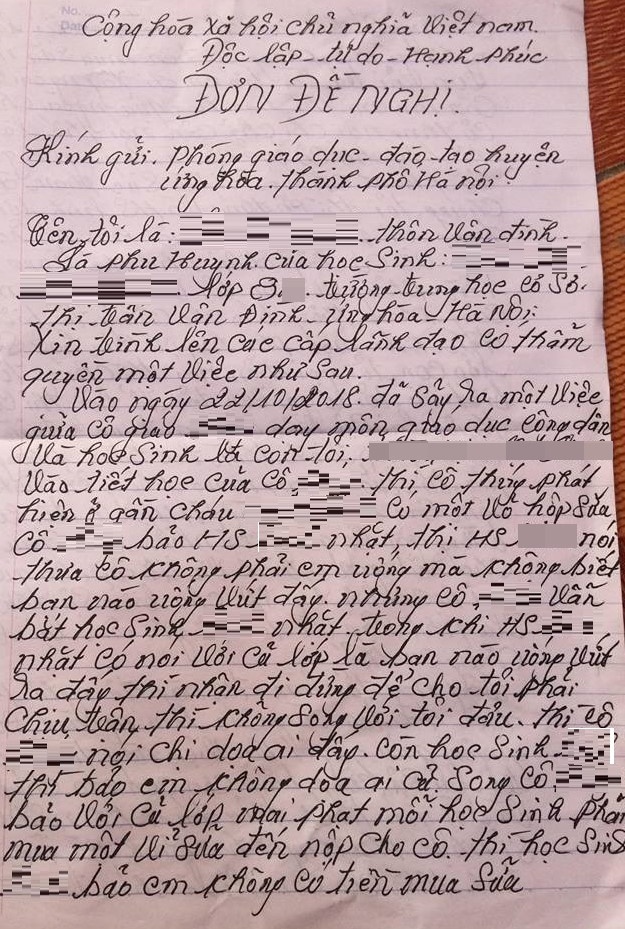 No.
Cộng hòa xã hội chủ nghĩa Việt nam.
Độc lập - tự do - Hạnh phúc
ĐƠN ĐỀ NGHỊ.
Kính gửi. Phòng giáo dục - đào tạo huyện
ứng hòa. thành phố Hà nội
Tên tôi là: thôn Vân đình.
Là phụ Huynh của học Sinh:
lớp 8 trường trung học cơ Sở.
thị trấn Vân Đình - ứng hòa - Hà Nội:
Xin trình lên các cấp lãnh đạo có thẩm
quyền một Việc như Sau.
Vào ngày 22/10/2018. đã Sảy ra một Việc
giữa cô giáo dạy môn giáo dục công dân
Và học Sinh là con tôi,
Vào tiết học của cô thì cô thấy phát
hiện ở gần cháu có một Vỏ hộp Sữa
cô bảo HS nhặt, thì HS nói
thưa cô không phải em uống mà không biết
bạn nào uống Vứt đấy. nhưng cô Vẫn
bắt học Sinh nhặt. trong khi HS
nhặt có nói Với cả lớp là bạn nào uống Vứt
ra đấy thì nhận đi đừng để cho tôi phải
chịu trận, thì không Song Với tôi đâu. thì cô
nói chị dọa ai đấy. còn học Sinh
thì bảo em không dọa ai cả. Song cô
bảo Với cả lớp mai phạt mỗi học Sinh phải
mua một Vỉ Sữa đến nộp cho cô. thì học Sinh
bảo em không có tiền mua Sữa